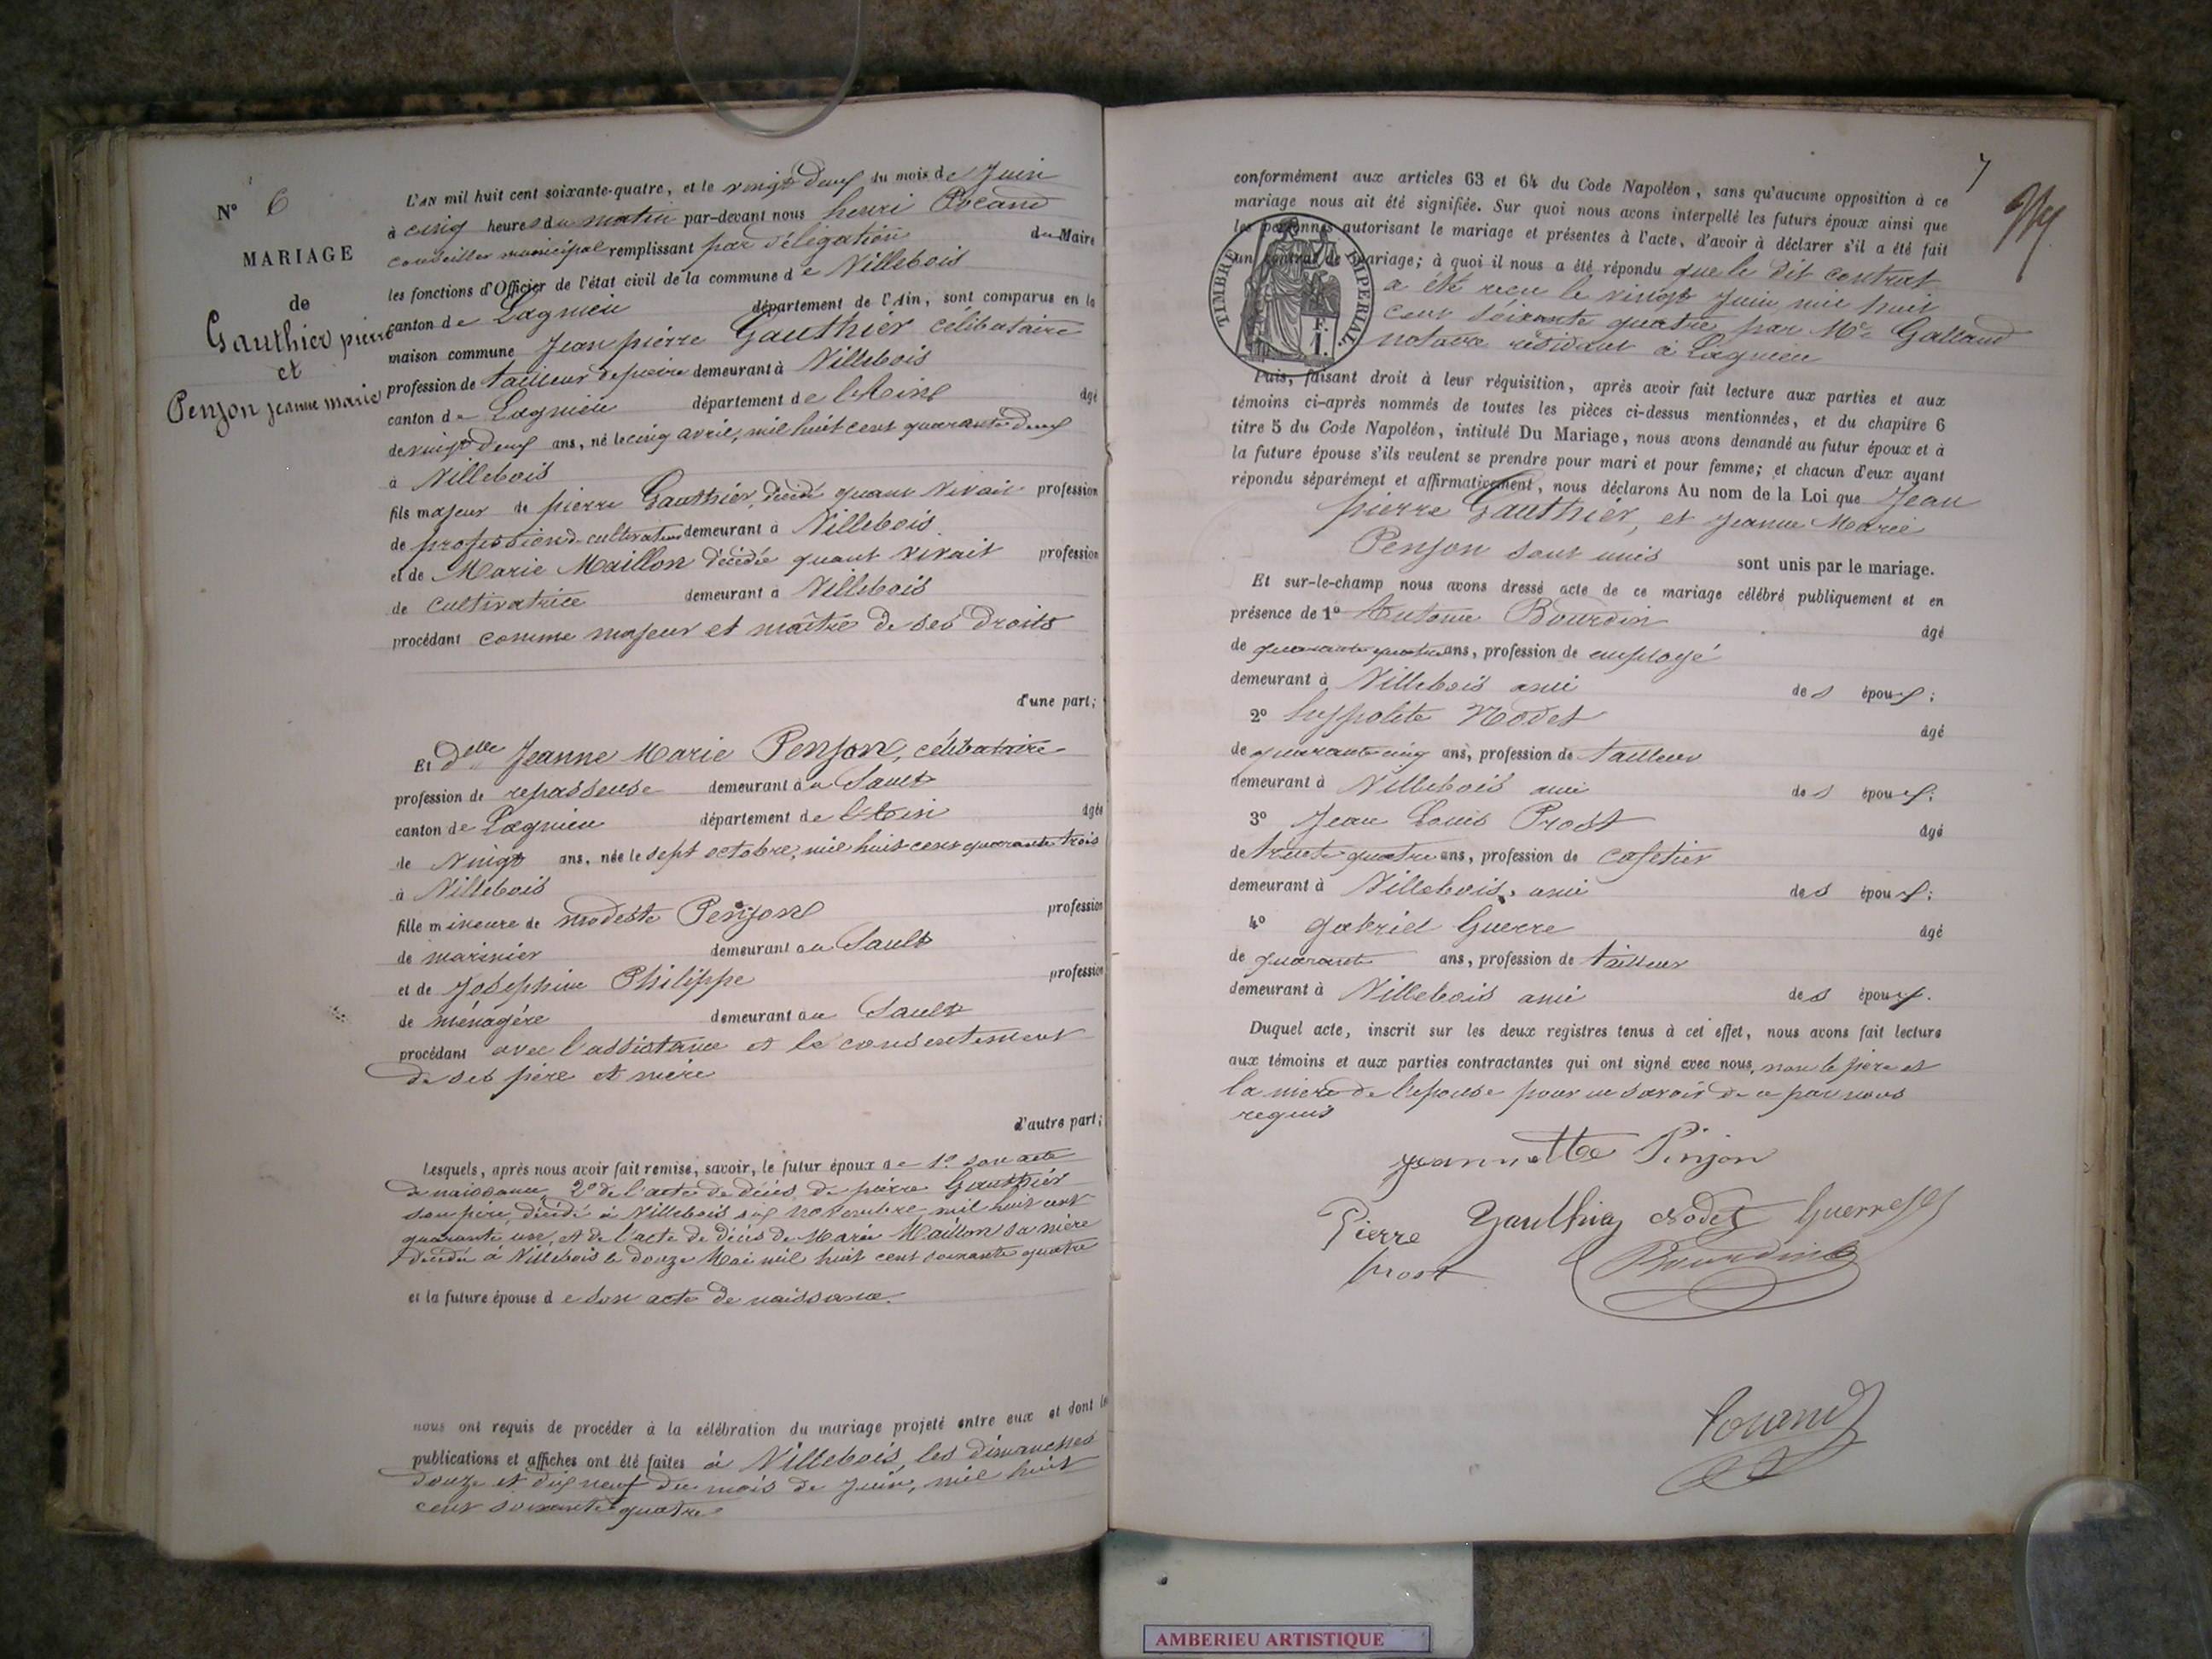 N° 6
MARIAGE
de
Gauthier pierre
et
Penjon jeanne marie
L'AN mil huit cent soixante-quatre, et le vingt deux du mois de Juin
à cinq heures du matin par-devant nous henri
conseiller municipal remplissant par délégation du Maire
les fonctions d'Officier de l'état civil de la commune de Villebois
canton de Lagnieu département de l'Ain, sont comparus en la
maison commune Jean pierre Gauthier célibataire
profession de tailleur de pierre demeurant à Villebois
canton de Lagnieu département de l'Ain âgé
de vingt deux ans, né le cinq avril, mil huit cent quarante deux
à Villebois
fils majeur de pierre Gauthier, décédé quant vivait profession
de profession d. cultivateur demeurant à Villebois
et de Marie Maillon décédée quant vivait profession
de cultivatrice demeurant à Villebois
procédant comme majeur et maître de ses droits
d'une part;
Et delle Jeanne Marie Penjon, célibataire
profession de repasseuse demeurant au Sault
canton de Lagnieu département de l'Ain âgée
de vingt ans, née le sept octobre, mil huit cent quarante trois
à Villebois
fille mineure de modeste Penjon profession
de marinier demeurant au Sault
et de Joséphine Philippe profession
de ménagère demeurant au Sault
procédant avec l'assistance et le consentement
de ses père et mère
d'autre part;
Lesquels, après nous avoir fait remise, savoir, le futur époux de 1° son acte
de naissance, 2° de l'acte de décès de pierre Gauthier
son père, décédé à Villebois six novembre mil huit cent
quarante un, et de l'acte de décès de Marie Maillon sa mère
décédée à Villebois le douze Mai mil huit cent soixante quatre
et la future épouse de son acte de naissance.
nous ont requis de procéder à la célébration du mariage projeté entre eux et dont les
publications et affiches ont été faites à Villebois, les dimanches
douze et dix neuf du mois de juin, mil huit
cent soixante quatre
7
conformément aux articles 63 et 64 du Code Napoléon, sans qu'aucune opposition à ce
mariage nous ait été signifiée. Sur quoi nous avons interpellé les futurs époux ainsi que
les personnes autorisant le mariage et présentes à l'acte, d'avoir à déclarer s'il a été fait
un contrat de mariage; à quoi il nous a été répondu que le dit contrat
a été reçu le vingt juin mil huit
cent soixante quatre par Me Galland
notaire résidant à Lagnieu
TIMBRE IMPERIAL
F.
1.
Puis, faisant droit à leur réquisition, après avoir fait lecture aux parties et aux
témoins ci-après nommés de toutes les pièces ci-dessus mentionnées, et du chapitre 6
titre 5 du Code Napoléon, intitulé Du Mariage, nous avons demandé au futur époux et à
la future épouse s'ils veulent se prendre pour mari et pour femme; et chacun d'eux ayant
répondu séparément et affirmativement, nous déclarons Au nom de la Loi que Jean
pierre Gauthier, et Jeanne Marie
Penjon sont unis sont unis par le mariage.
Et sur-le-champ nous avons dressé acte de ce mariage célébré publiquement et en
présence de 1° Antoine Bourdin âgé
de quarante quatre ans, profession de employé
demeurant à Villebois ami des époux;
2° hyppolite Nodet âgé
de quarante cinq ans, profession de tailleur
demeurant à Villebois ami des époux;
3° Jean Louis Prost âgé
de trente quatre ans, profession de cafetier
demeurant à Villebois, ami des époux;
4° gabriel Guerre âgé
de quarante ans, profession de tailleur
demeurant à Villebois ami des époux.
Duquel acte, inscrit sur les deux registres tenus à cet effet, nous avons fait lecture
aux témoins et aux parties contractantes qui ont signé avec nous, non le père et
la mère de l'épouse pour ne savoir de ce par nous
requis
jeannette Pinjon
Pierre Gauthier Nodet Guerre
prost Bourdin
AMBERIEU ARTISTIQUE